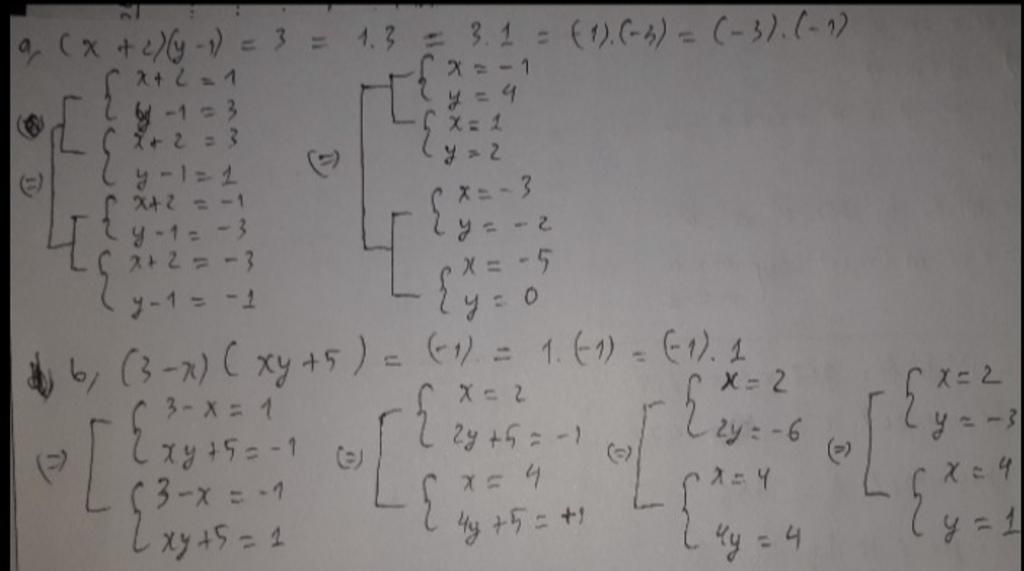 a, (x + 2)(y - 1) = 3 = 1.3 = 3.1 = (-1).(-3) = (-3).(-1)
(=) { x + 2 = 1
y - 1 = 3
{ x + 2 = 3
y - 1 = 1
{ x + 2 = -1
y - 1 = -3
{ x + 2 = -3
y - 1 = -1
(=) { x = -1
y = 4
{ x = 1
y = 2
{ x = -3
y = -2
{ x = -5
y = 0
b, (3 - x)(xy + 5) = (-1) = 1.(-1) = (-1).1
(=) { 3 - x = 1
xy + 5 = -1
{ 3 - x = -1
xy + 5 = 1
(=) { x = 2
2y + 5 = -1
{ x = 4
4y + 5 = +1
(=) { x = 2
2y = -6
{ x = 4
4y = 4
(=) { x = 2
y = -3
{ x = 4
y = 1